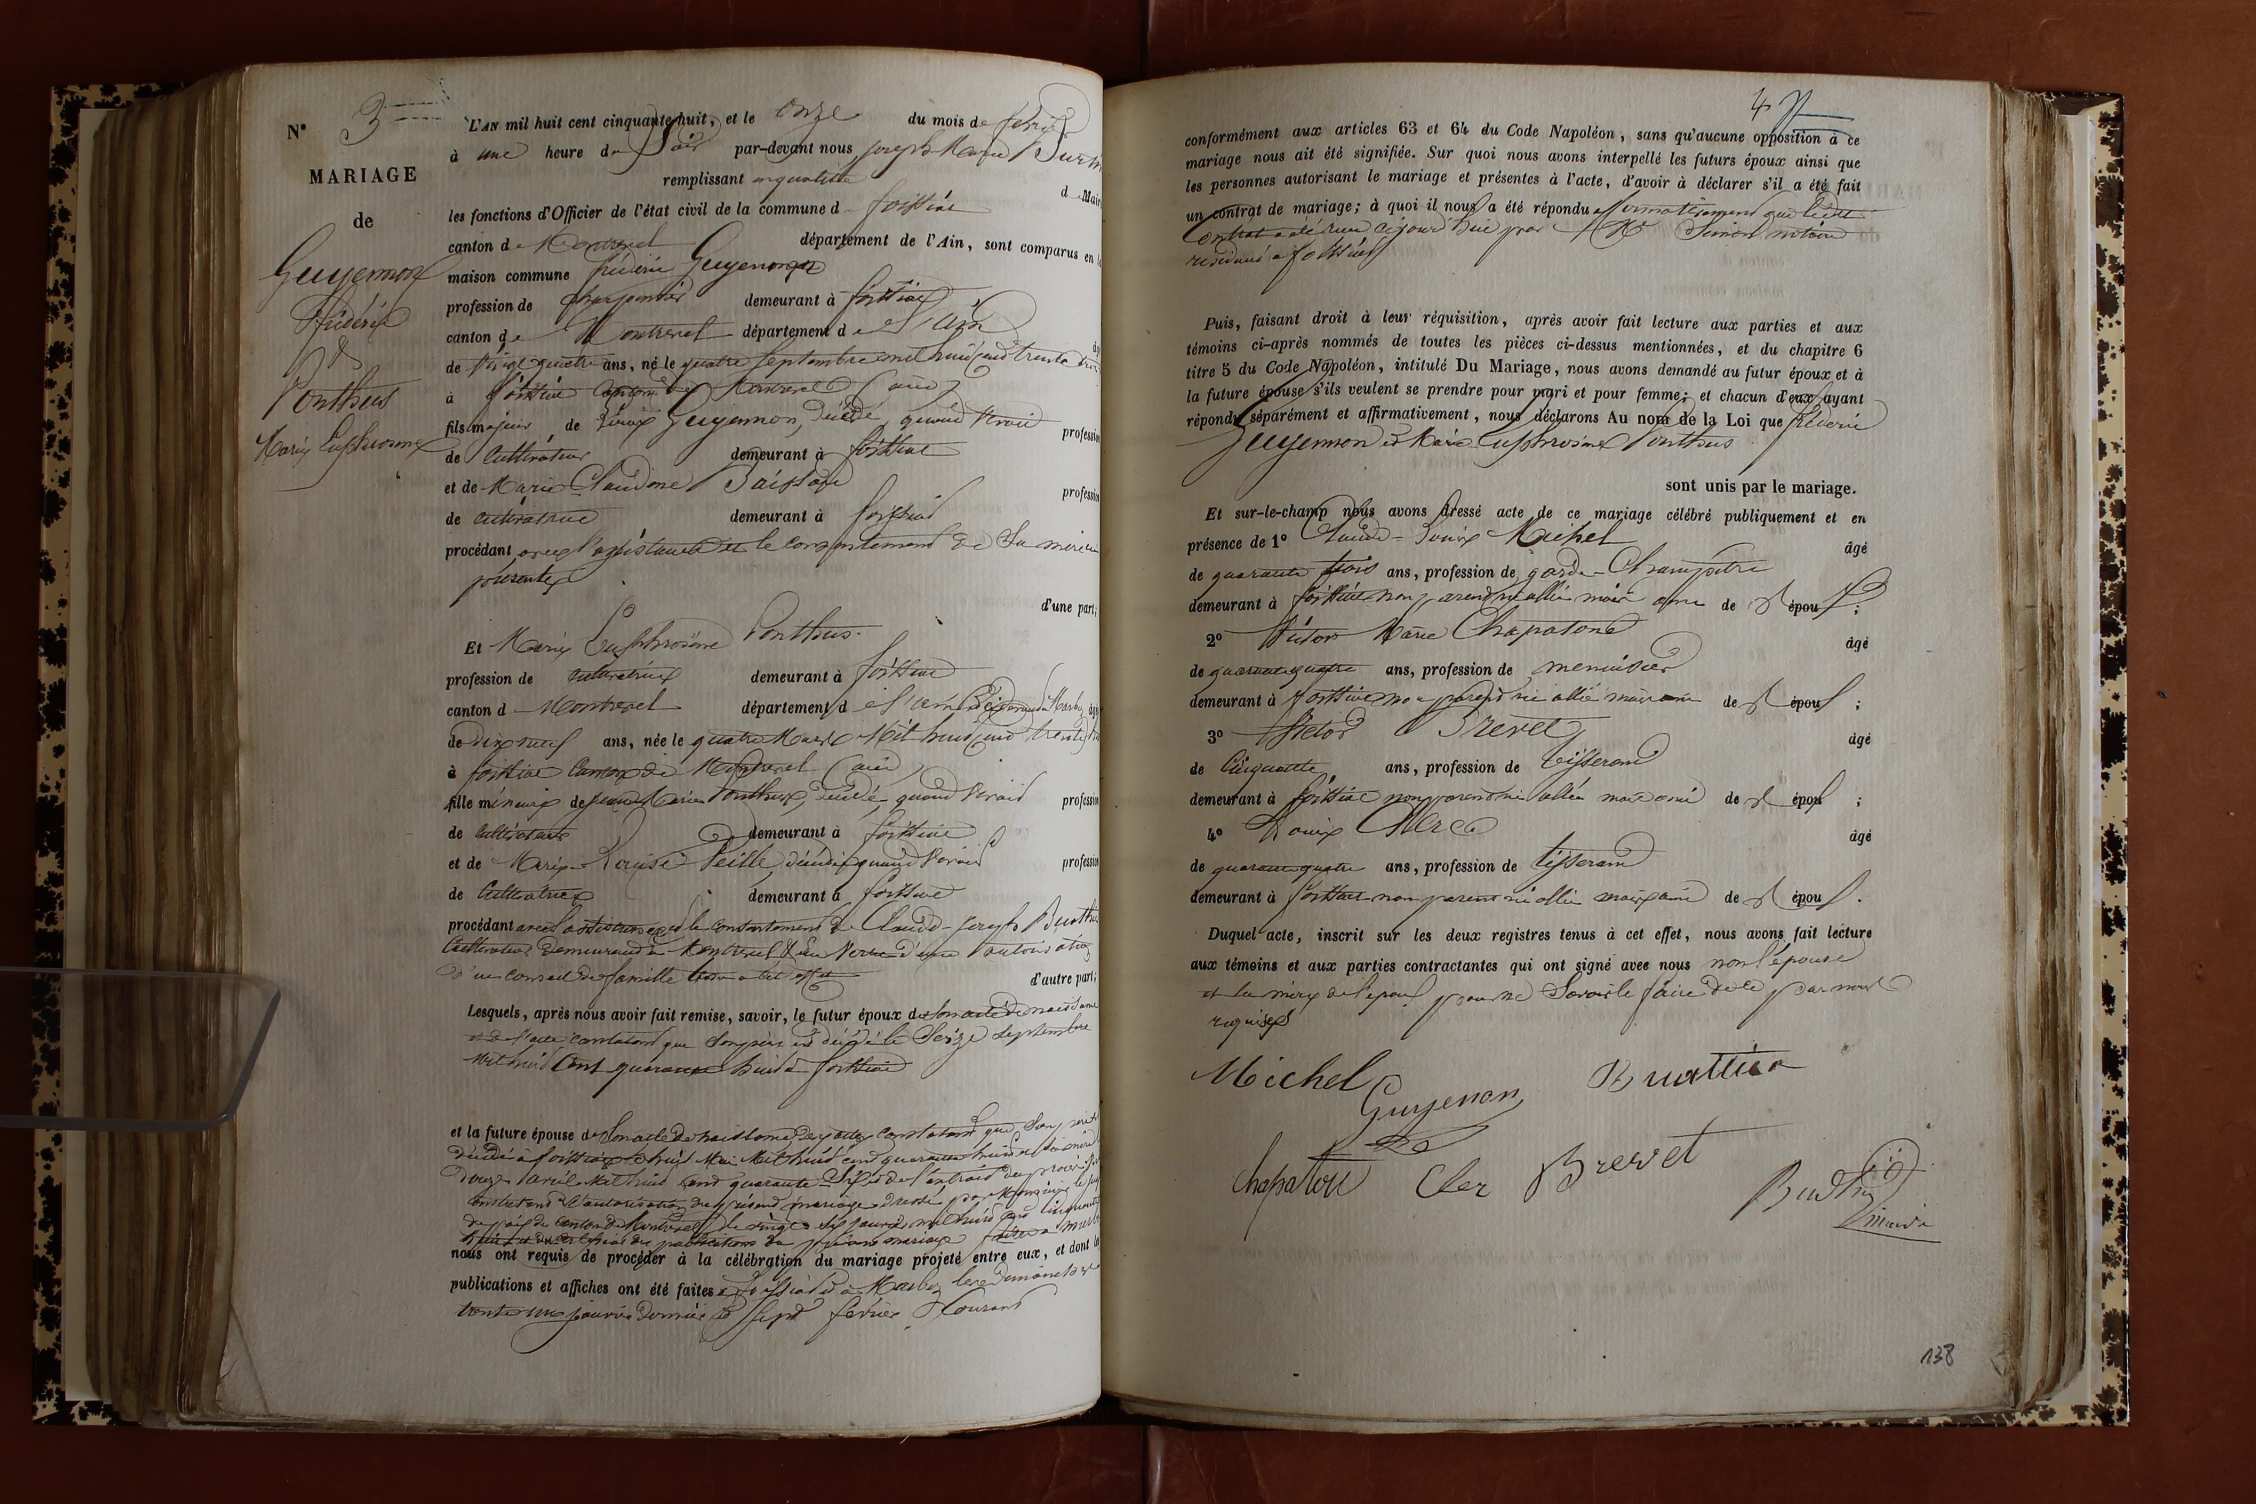 N° 3
MARIAGE
de
Guyennon
Frédéric
&
Ponthus
Marie Euphrosine
L'AN mil huit cent cinquante huit, et le onze du mois de
à une heure du Soir par-devant nous joseph Marie
remplissant en qualité d Maire
les fonctions d'Officier de l'état civil de la commune d foissiat
canton de Montrevel département de l'Ain, sont comparus en la
maison commune frédéric Guyennon
profession de charpentier demeurant à foissiat
canton de Montrevel département de l'ain
de vingt quatre ans, né le quatre septembre mil huit cent trente trois
à foissiat canton de Montrevel (ain)
fils majeur de Louis Guyennon, décédé, quand vivait profession
de cultivateur demeurant à foissiat
et de Marie Claudine profession
de cultivatrice demeurant à foissiat
procédant avec l'assistance et le consentement de Sa mère
présente
d'une part;
Et Marie Euphrosine Ponthus
profession de cultivatrice demeurant à foissiat
canton d Montrevel département de l'ain
de dix neuf ans, née le quatre Mars Mil huit cent trente
à foissiat canton de Montrevel (ain)
fille mineure de Ponthus, décédé quand vivait profession
de cultivateur demeurant à foissiat
et de Marie Louise décédée quand vivait profession
de cultivatrice demeurant à foissiat
procédant avec l'assistance et le consentement de Claude-joseph
cultivateur demeurant à
d'un conseil de famille à cet effet
d'autre part;
Lesquels, après nous avoir fait remise, savoir, le futur époux de son acte de naissance
et de l'acte constatant que son père est décédé le Seize septembre
Mil huit Cent quarante huit à foissiat
et la future épouse de Son acte de naissance des actes constatant que Son père est
décédé à foissiat le huit Mai Mil huit cent quarante huit
Douze avril Mil huit cent quarante Six et de l'extrait du procès
l'autorisation du présent mariage
de paix du Canton de Montrevel
publications du présent mariage
nous ont requis de procéder à la célébration du mariage projeté entre eux, et dont les
publications et affiches ont été faites à foissiat et à Marboz les dimanches
trente un janvier dernier et Sept février Courant
4
conformément aux articles 63 et 64 du Code Napoléon, sans qu'aucune opposition à ce
mariage nous ait été signifiée. Sur quoi nous avons interpellé les futurs époux ainsi que
les personnes autorisant le mariage et présentes à l'acte, d'avoir à déclarer s'il a été fait
un contrat de mariage; à quoi il nous a été répondu affirmativement que ledit
Contrat a été reçu aujourd'hui par Me Simon notaire
résidant à foissiat
Puis, faisant droit à leur réquisition, après avoir fait lecture aux parties et aux
témoins ci-après nommés de toutes les pièces ci-dessus mentionnées, et du chapitre 6
titre 5 du Code Napoléon, intitulé Du Mariage, nous avons demandé au futur époux et à
la future épouse s'ils veulent se prendre pour mari et pour femme; et chacun d'eux ayant
répondu séparément et affirmativement, nous déclarons Au nom de la Loi que frédéric
Guyennon et Marie Euphrosine Ponthus
sont unis par le mariage.
Et sur-le-champ nous avons dressé acte de ce mariage célébré publiquement et en
présence de 1° Claude-Louis Michel âgé
de quarante trois ans, profession de garde-Champêtre
demeurant à foissiat non parent ni allié mais ami de l'époux;
2° Victor Marie Chapaton âgé
de quarante quatre ans, profession de menuisier
demeurant à foissiat non parent ni allié mais ami de l'époux;
3° Victor Brevet âgé
de Cinquante ans, profession de tisserand
demeurant à foissiat non parent ni allié mais ami de l'époux;
4° Louis Clerc âgé
de quarante quatre ans, profession de tisserand
demeurant à foissiat non parent ni allié mais ami de l'époux.
Duquel acte, inscrit sur les deux registres tenus à cet effet, nous avons fait lecture
aux témoins et aux parties contractantes qui ont signé avec nous non l'épouse
et la mère de l'époux pour ne Savoir le faire de ce par nous
requises
Michel
Guyenon
Buattier
Chapaton
Cler
Brevet
maire
138